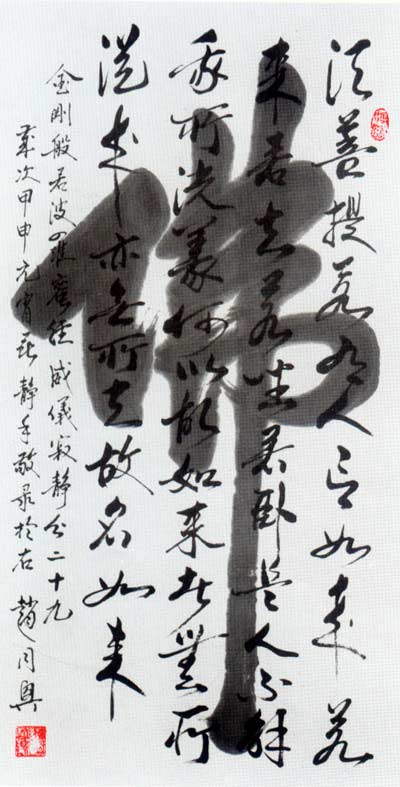 佛
須菩提若有人言如来若
来若去若坐若卧是人不解
我所說義何以故如来者無所
從来亦無所去故名如来
金剛般若波羅蜜經威儀寂静分二十九
歲次甲申元宵静手敬录於右 趙同興